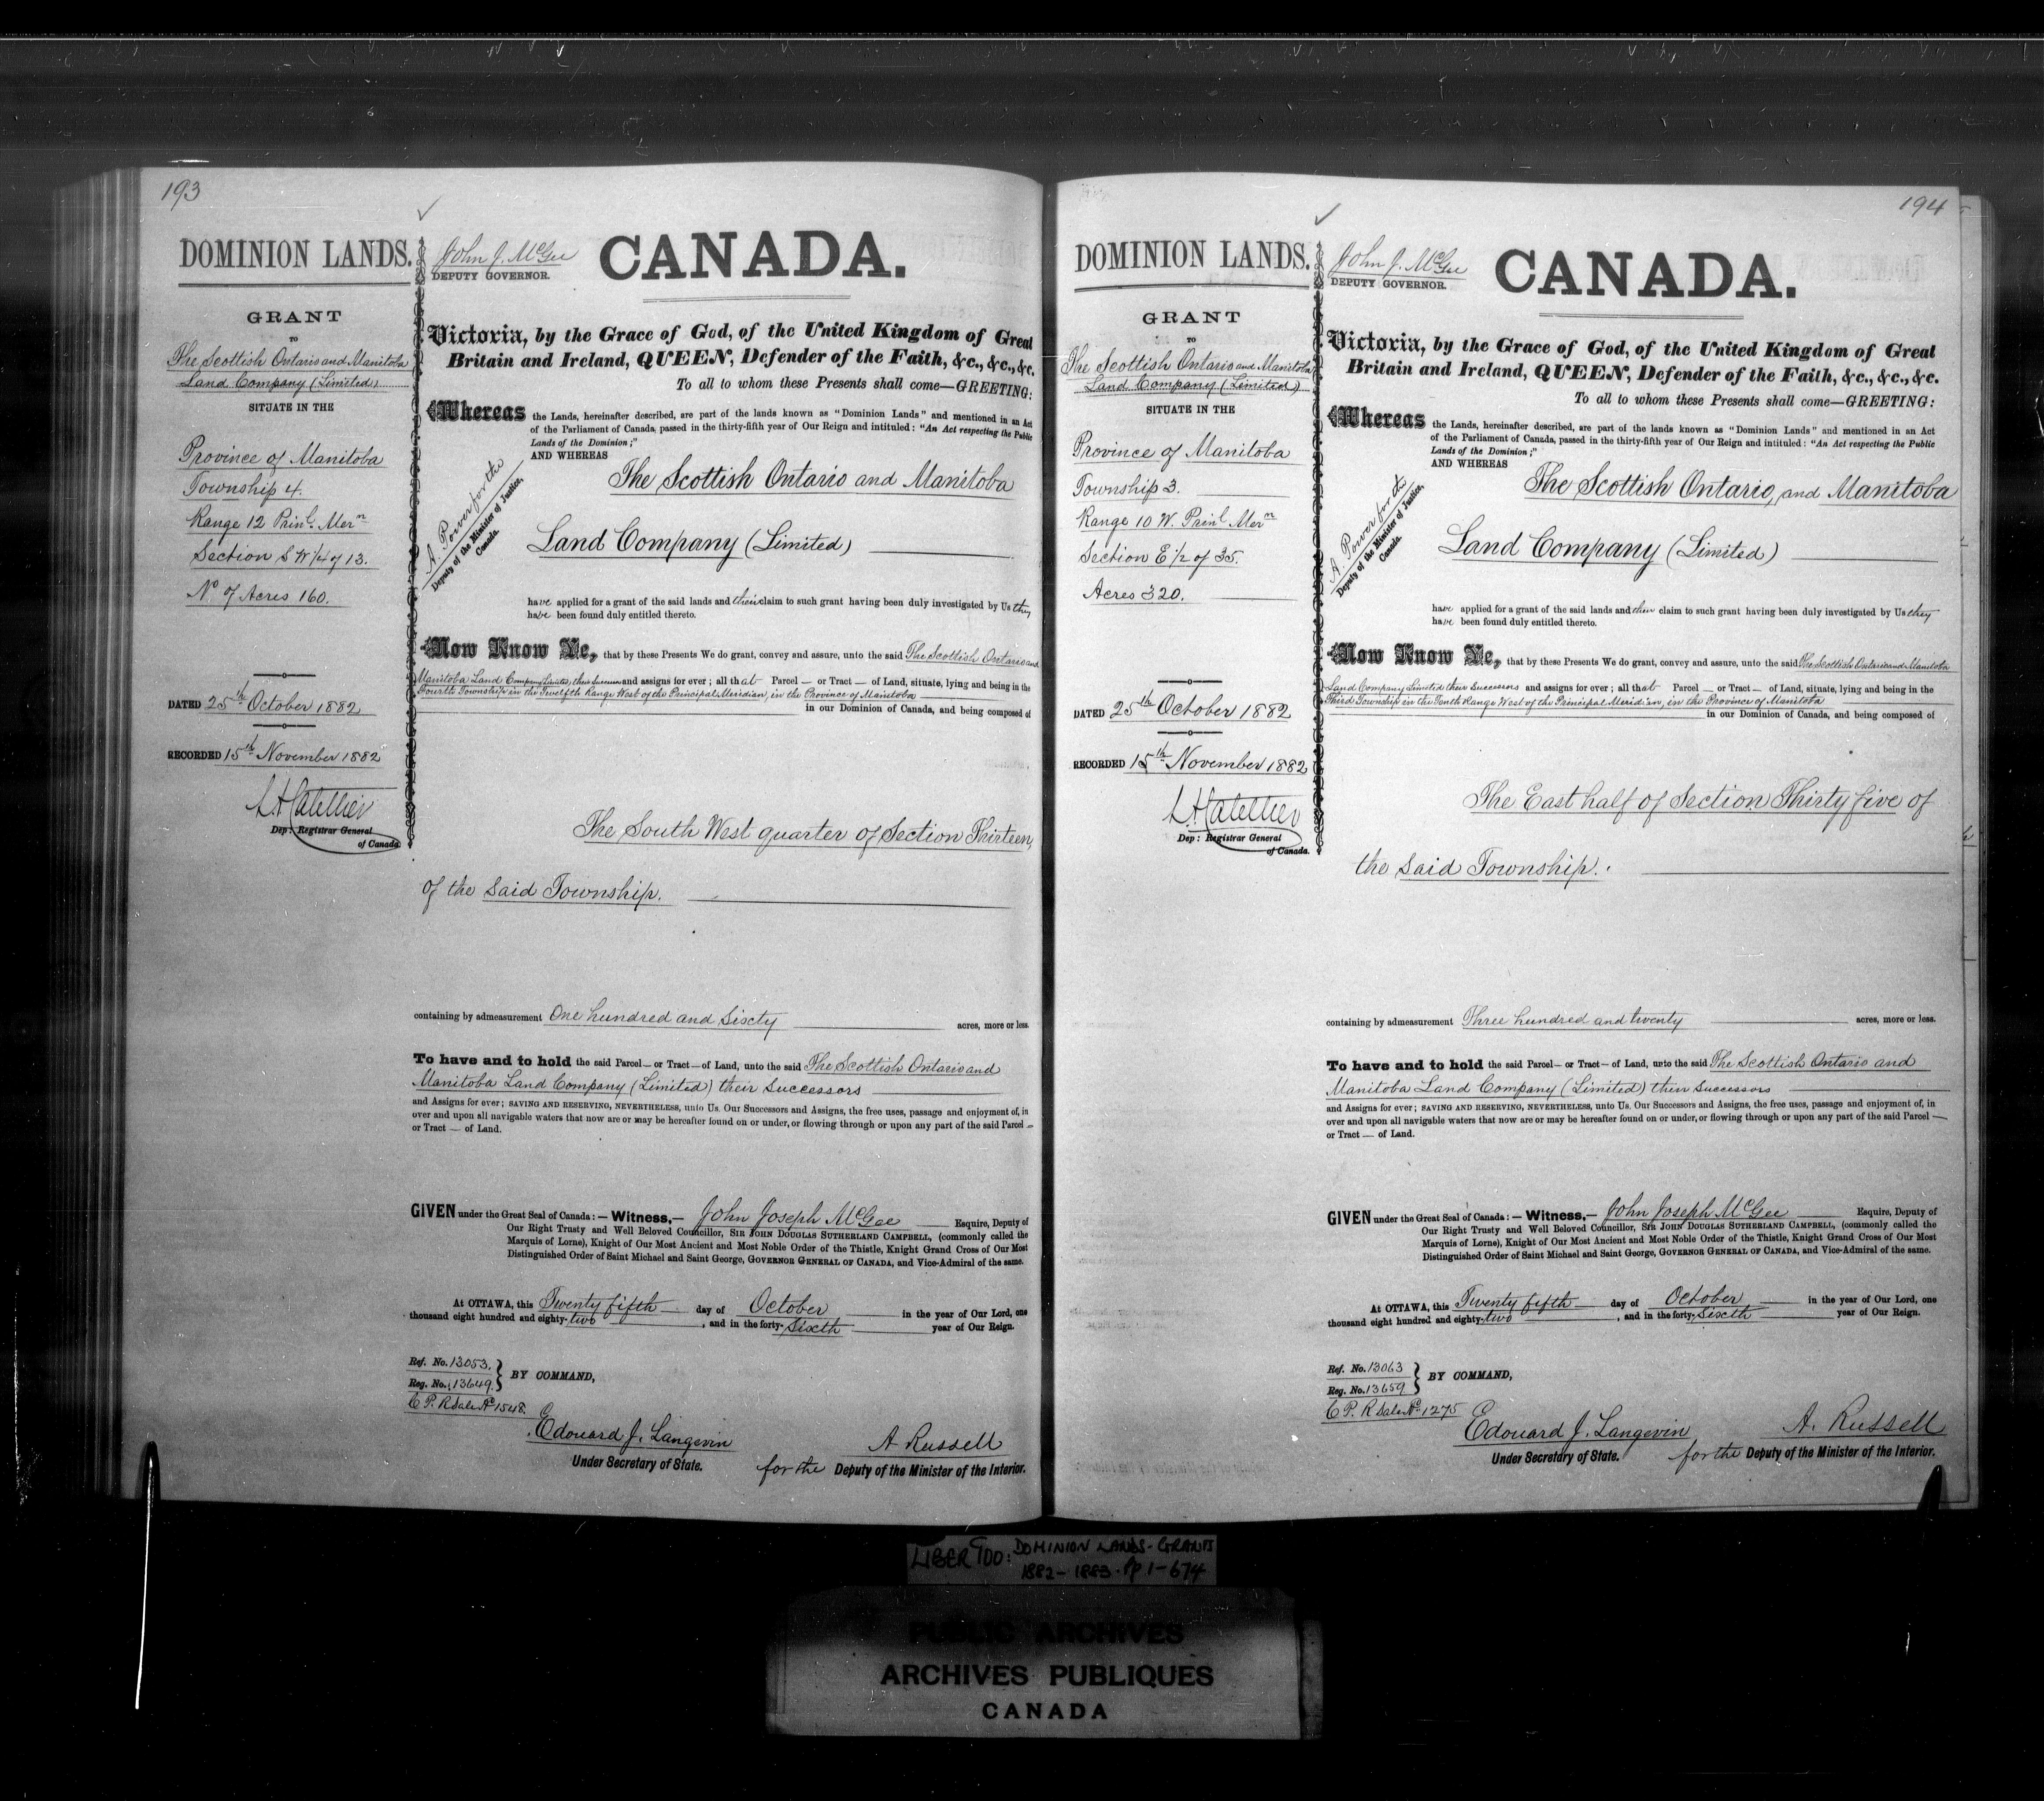 193
DOMINION LANDS.
GRANT
TO
The Scottish Ontario and Manitoba
Land Company (Limited)
SITUATE IN THE
Province of Manitoba
Township 4.
Range 12 Prinl. Mern
Section S W 1/4 of 13.
No. of Acres 160.
DATED 25th October 1882
RECORDED 15th November 1882
L. H. Catellier
Dep: Registrar General
of Canada.
John J. McGee
DEPUTY GOVERNOR.
CANADA.
Victoria, by the Grace of God, of the United Kingdom of Great
Britain and Ireland, QUEEN, Defender of the Faith, &c., &c., &c.
To all to whom these Presents shall come—GREETING:
Whereas the Lands, hereinafter described, are part of the lands known as "Dominion Lands" and mentioned in an Act
of the Parliament of Canada, passed in the thirty-fifth year of Our Reign and intituled: "An Act respecting the Public
Lands of the Dominion;"
AND WHEREAS
A. Power for the
Deputy of the Minister of Justice,
Canada.
The Scottish Ontario and Manitoba
Land Company (Limited)
have applied for a grant of the said lands and their claim to such grant having been duly investigated by Us they
have been found duly entitled thereto.
Now Know Ye, that by these Presents We do grant, convey and assure, unto the said The Scottish Ontario and
Manitoba Land Company Limited, their Successors and assigns for ever; all that Parcel — or Tract — of Land, situate, lying and being in the
Fourth Township in the Twelfth Range West of the Principal Meridian, in the Province of Manitoba
in our Dominion of Canada, and being composed of
The South West quarter of Section Thirteen,
of the said Township.
containing by admeasurement One hundred and Sixty acres, more or less.
To have and to hold the said Parcel — or Tract — of Land, unto the said The Scottish Ontario and
Manitoba Land Company (Limited) their Successors
and Assigns for ever; SAVING AND RESERVING, NEVERTHELESS, unto Us. Our Successors and Assigns, the free uses, passage and enjoyment of, in
over and upon all navigable waters that now are or may be hereafter found on or under, or flowing through or upon any part of the said Parcel —
or Tract — of Land.
GIVEN under the Great Seal of Canada: — Witness,— John Joseph McGee Esquire, Deputy of
Our Right Trusty and Well Beloved Councillor, SIR JOHN DOUGLAS SUTHERLAND CAMPBELL, (commonly called the
Marquis of Lorne), Knight of Our Most Ancient and Most Noble Order of the Thistle, Knight Grand Cross of Our Most
Distinguished Order of Saint Michael and Saint George, GOVERNOR GENERAL OF CANADA, and Vice-Admiral of the same.
At OTTAWA, this Twenty fifth day of October in the year of Our Lord, one
thousand eight hundred and eighty-two, and in the forty-Sixth year of Our Reign.
Ref. No. 13053.
Reg. No. 13649.
BY COMMAND,
C P. R Sale No 1548.
Edouard J. Langevin
Under Secretary of State.
A Russell
for the Deputy of the Minister of the Interior.
194
DOMINION LANDS.
GRANT
TO
The Scottish Ontario and Manitoba
Land Company (Limited)
SITUATE IN THE
Province of Manitoba
Township 3.
Range 10 W. Prinl Mern
Section E 1/2 of 35.
Acres 320.
DATED 25th October 1882
RECORDED 15th November 1882
L. H. Catellier
Dep: Registrar General
of Canada.
John J. McGee
DEPUTY GOVERNOR.
CANADA.
Victoria, by the Grace of God, of the United Kingdom of Great
Britain and Ireland, QUEEN, Defender of the Faith, &c., &c., &c.
To all to whom these Presents shall come—GREETING:
Whereas the Lands, hereinafter described, are part of the lands known as "Dominion Lands" and mentioned in an Act
of the Parliament of Canada, passed in the thirty-fifth year of Our Reign and intituled: "An Act respecting the Public
Lands of the Dominion;"
AND WHEREAS
A. Power for the
Deputy of the Minister of Justice,
Canada.
The Scottish Ontario, and Manitoba
Land Company (Limited)
have applied for a grant of the said lands and their claim to such grant having been duly investigated by Us they
have been found duly entitled thereto.
Now Know Ye, that by these Presents We do grant, convey and assure, unto the said The Scottish Ontario and Manitoba
Land Company Limited their Successors and assigns for ever; all that Parcel — or Tract — of Land, situate, lying and being in the
Third Township in the Tenth Range West of the Principal Meridian, in the Province of Manitoba
in our Dominion of Canada, and being composed of
The East half of Section Thirty five of
the said Township.
containing by admeasurement Three hundred and twenty acres, more or less.
To have and to hold the said Parcel — or Tract — of Land, unto the said The Scottish Ontario and
Manitoba Land Company (Limited) their Successors
and Assigns for ever; SAVING AND RESERVING, NEVERTHELESS, unto Us. Our Successors and Assigns, the free uses, passage and enjoyment of, in
over and upon all navigable waters that now are or may be hereafter found on or under, or flowing through or upon any part of the said Parcel —
or Tract — of Land.
GIVEN under the Great Seal of Canada: — Witness,— John Joseph McGee Esquire, Deputy of
Our Right Trusty and Well Beloved Councillor, SIR JOHN DOUGLAS SUTHERLAND CAMPBELL, (commonly called the
Marquis of Lorne), Knight of Our Most Ancient and Most Noble Order of the Thistle, Knight Grand Cross of Our Most
Distinguished Order of Saint Michael and Saint George, GOVERNOR GENERAL OF CANADA, and Vice-Admiral of the same.
At OTTAWA, this Twenty fifth day of October in the year of Our Lord, one
thousand eight hundred and eighty-two, and in the forty-Sixth year of Our Reign.
Ref. No. 13063
Reg. No. 13659
BY COMMAND,
C P. R Sale No. 1275
Edouard J. Langevin
Under Secretary of State.
A. Russell
for the Deputy of the Minister of the Interior.
LIBER 900: DOMINION LANDS-GRANTS
1882-1883. Pp 1-674
PUBLIC ARCHIVES
ARCHIVES PUBLIQUES
CANADA